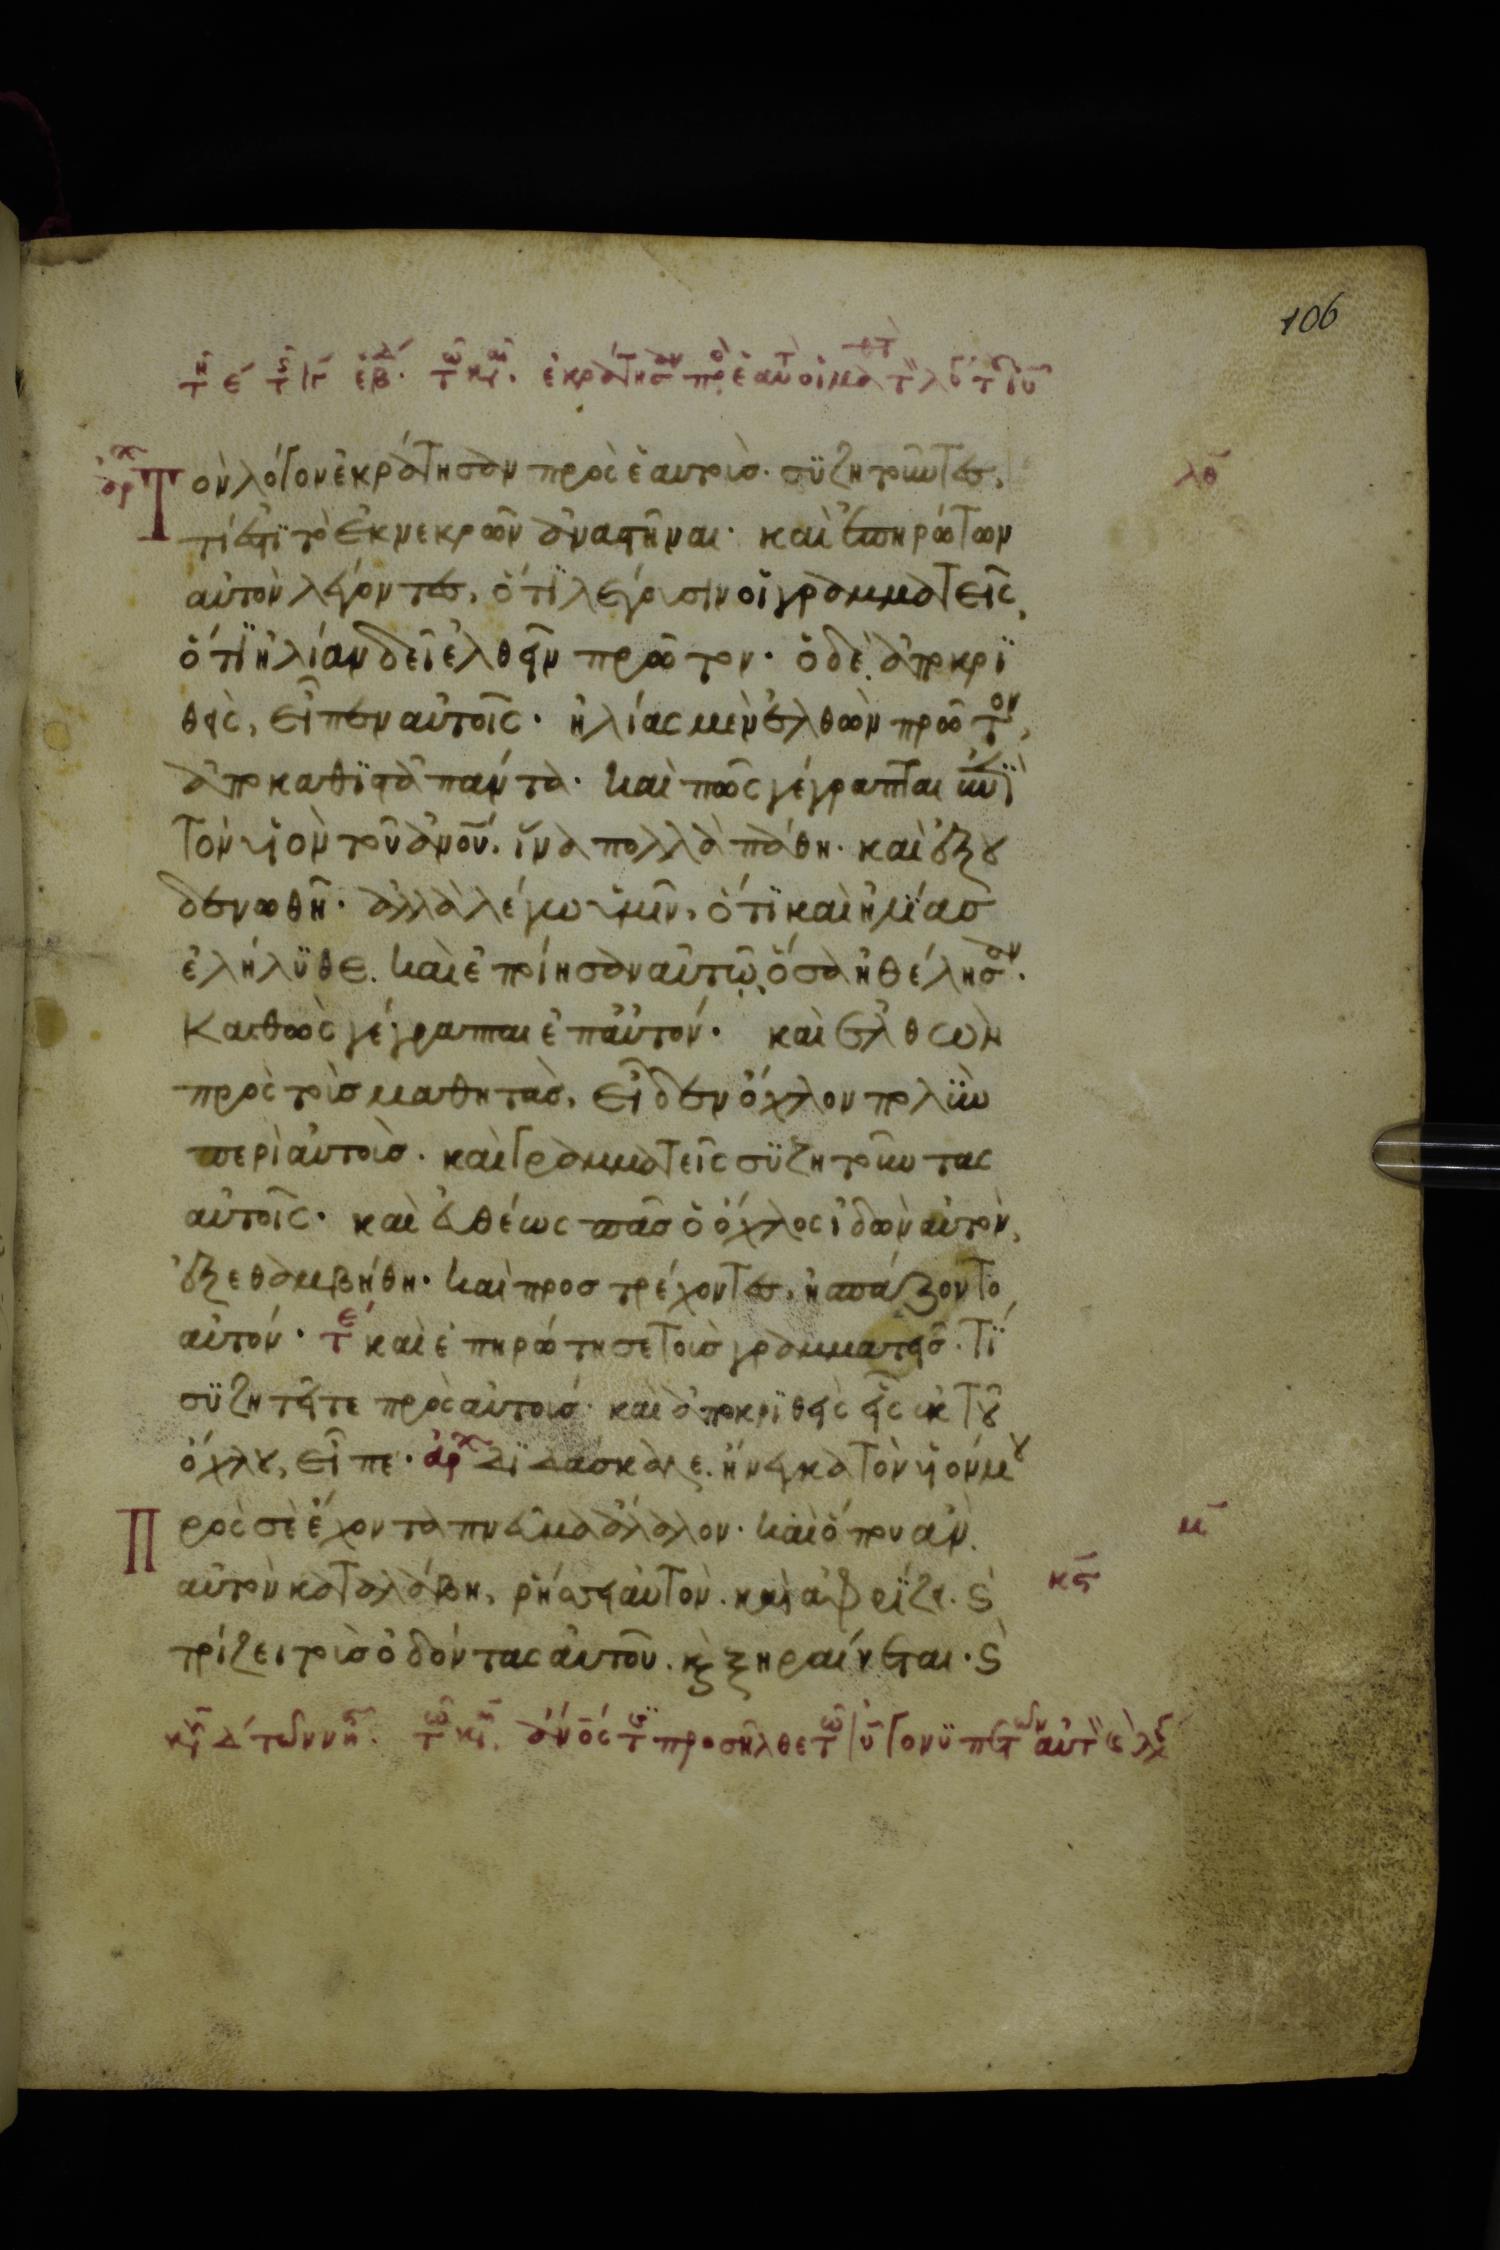 106
τῇ ε τῆς ιγ ἑβδ. τῷ κρ. ἐκράτησαν πρὸς ἑαυτ οἱ μαθτ τ λό τ ἰυ
ἀρχ Τὸν λόγον ἐκράτησαν πρὸς ἑαυτοὺς. συζητοῦντες, λθ
τί ἐστι τὸ ἐκ νεκρῶν ἀναστῆναι· καὶ ἐπηρώτων
αὐτὸν λέγοντες, ὅτι λέγουσιν οἱ γραμματεῖς,
ὅτι ἠλίαν δεῖ ἐλθεῖν πρῶτον· ὁ δὲ ἀποκρι
θεὶς, εἶπεν αὐτοῖς· ἠλίας μὲν ἐλθὼν πρῶτον,
ἀποκαθιστᾷ πάντα· καὶ πῶς γέγραπται ἐπὶ
τὸν υἱὸν τοῦ ἀνου. ἵνα πολλὰ πάθη· καὶ ἐξου
δενωθῇ· ἀλλὰ λέγω ὑμῖν, ὅτι καὶ ἠλίας
ἐλήλυθε. καὶ ἐποίησαν αὐτῷ, ὅσα ἠθέλησαν.
Καθὼς γέγραπται ἐπ αὐτόν· καὶ ἐλθὼν
πρὸς τοὺς μαθητὰς, εἶδεν ὄχλον πολὺν
περὶ αὐτοὺς. καὶ γραμματεῖς συζητοῦντας
αὐτοῖς· καὶ εὐθέως πᾶς ὁ ὄχλος ἰδὼν αὐτὸν,
ἐξεθαμβήθη· καὶ προστρέχοντες, ἠσπάζοντο
αὐτόν· τε καὶ ἐπηρώτησε τοὺς γραμματεῖς. τί
συζητεῖτε πρὸς αὐτούς· καὶ ἀποκριθεὶς εἷς ἐκ τοῦ
ὄχλου, εἶπε· ἀρχ Διδάσκαλε. ἤνεγκα τὸν υἱόν μου
Πρὸς σὲ ἔχοντα πνεῦμα ἄλαλον· καὶ ὅπου ἂν μ
αὐτὸν καταλάβη, ῥήσσει αὐτὸν. καὶ ἀφρίζει. καὶ κς
τρίζει τοὺς ὀδόντας αὐτοῦ. καὶ ξηραίνεται· καὶ
κυ δ τῶν νη. τῷ κρ. ἀνος τις προσῆλθε τῷ ἰυ γονυπετῶν αὐτ κ λγ